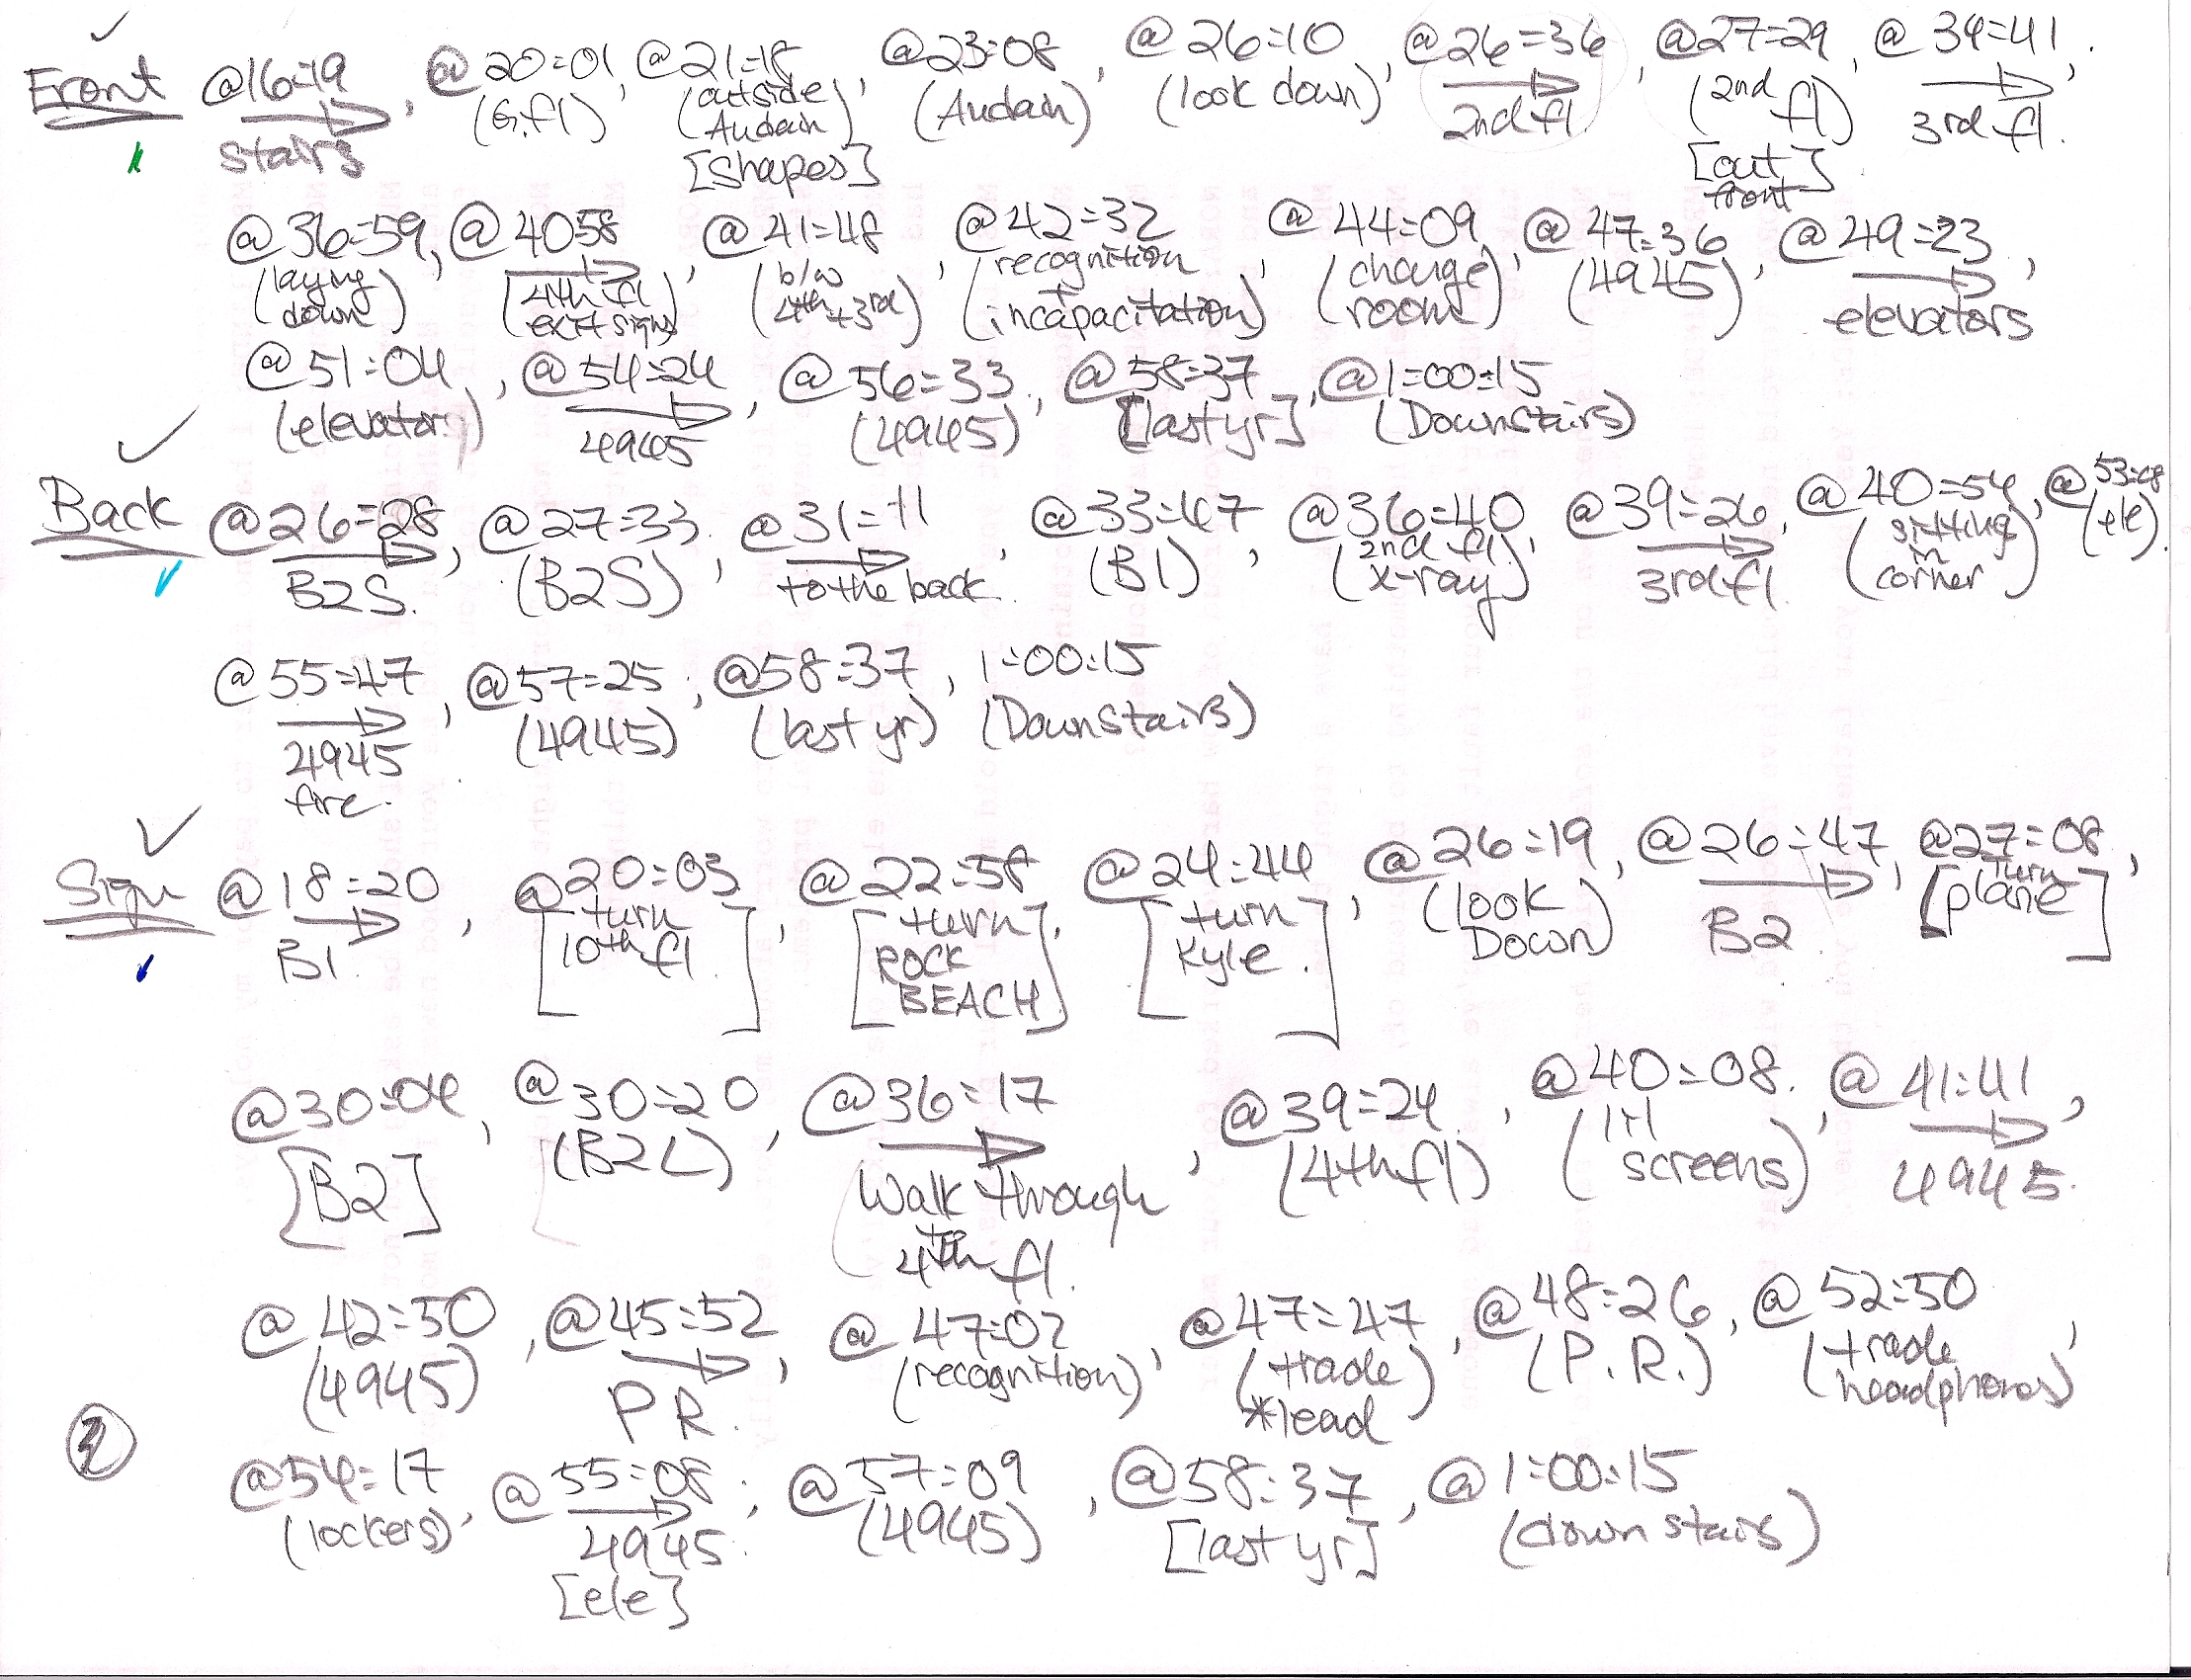 Front @16=19, @20=01, @21=18, @23=08, @26=10, @26=36, @27=29, @34=41,
stairs (G.fl) (outside Audain) (Audain) (look down) 2nd fl. (2nd fl) 3rd fl.
[shapes] [out front]
@36=59, @4058, @41=48, @42=32, @44=09, @47=36, @49=23,
(laying down) (4th fl exit sign) (b/w 4th+3rd) (recognition + incapacitation) (change room) (4945) elevators
@51=04, @54=24, @56=33, @58=37, @1=00=15
(elevator) 4945 (4945) [last yr] (Downstairs)
Back @26=28, @27=33, @31=11, @33=47, @36=40, @39=26, @40=54, @53=08
B2S. (B2S) to the back. (B1) (2nd fl. x-ray) 3rd fl. (sitting in corner) (ele).
@55=47, @57=25, @58=37, 1=00=15
4945 fire. (4945) (last yr) (Downstairs)
Sign @18=20, @20=03, @22=58, @24=44, @26=19, @26=47, @27=08,
B1. [turn 10th fl.] [turn ROCK BEACH] [turn Kyle.] (look Down) B2 [Turn plane]
@30=04, @30=20, @36=17, @39=24, @40=08, @41=41,
[B2] (B2L) Walk through to 4th fl. (4th fl) (1+1 screens) 4945.
@42=50, @45=52, @47=02, @47=47, @48=26, @52=50,
(4945) PR. (recognition) (trade *lead) (P.R.) (trade headphones)
2
@54=17, @55=08, @57=09, @58=37, @1=00=15
(lockers) 4945. (4945) [last yr] (down stairs)
[ele]